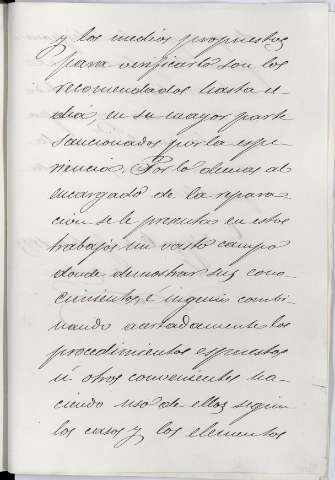 y los medios propuestos
para verificarlo son los
recomendados hasta el
dia, en su mayor parte
sancionados por la espe-
riencia. Por lo demas al
encargado de la repara-
cion se le presenta en estos
trabajos un vasto campo
donde demostrar sus cono-
cimientos, é ingenio combi-
nando acertadamente los
procedimientos espuestos
ú otros convenientes ha-
ciendo uso de ellos segun
los casos y los elementos